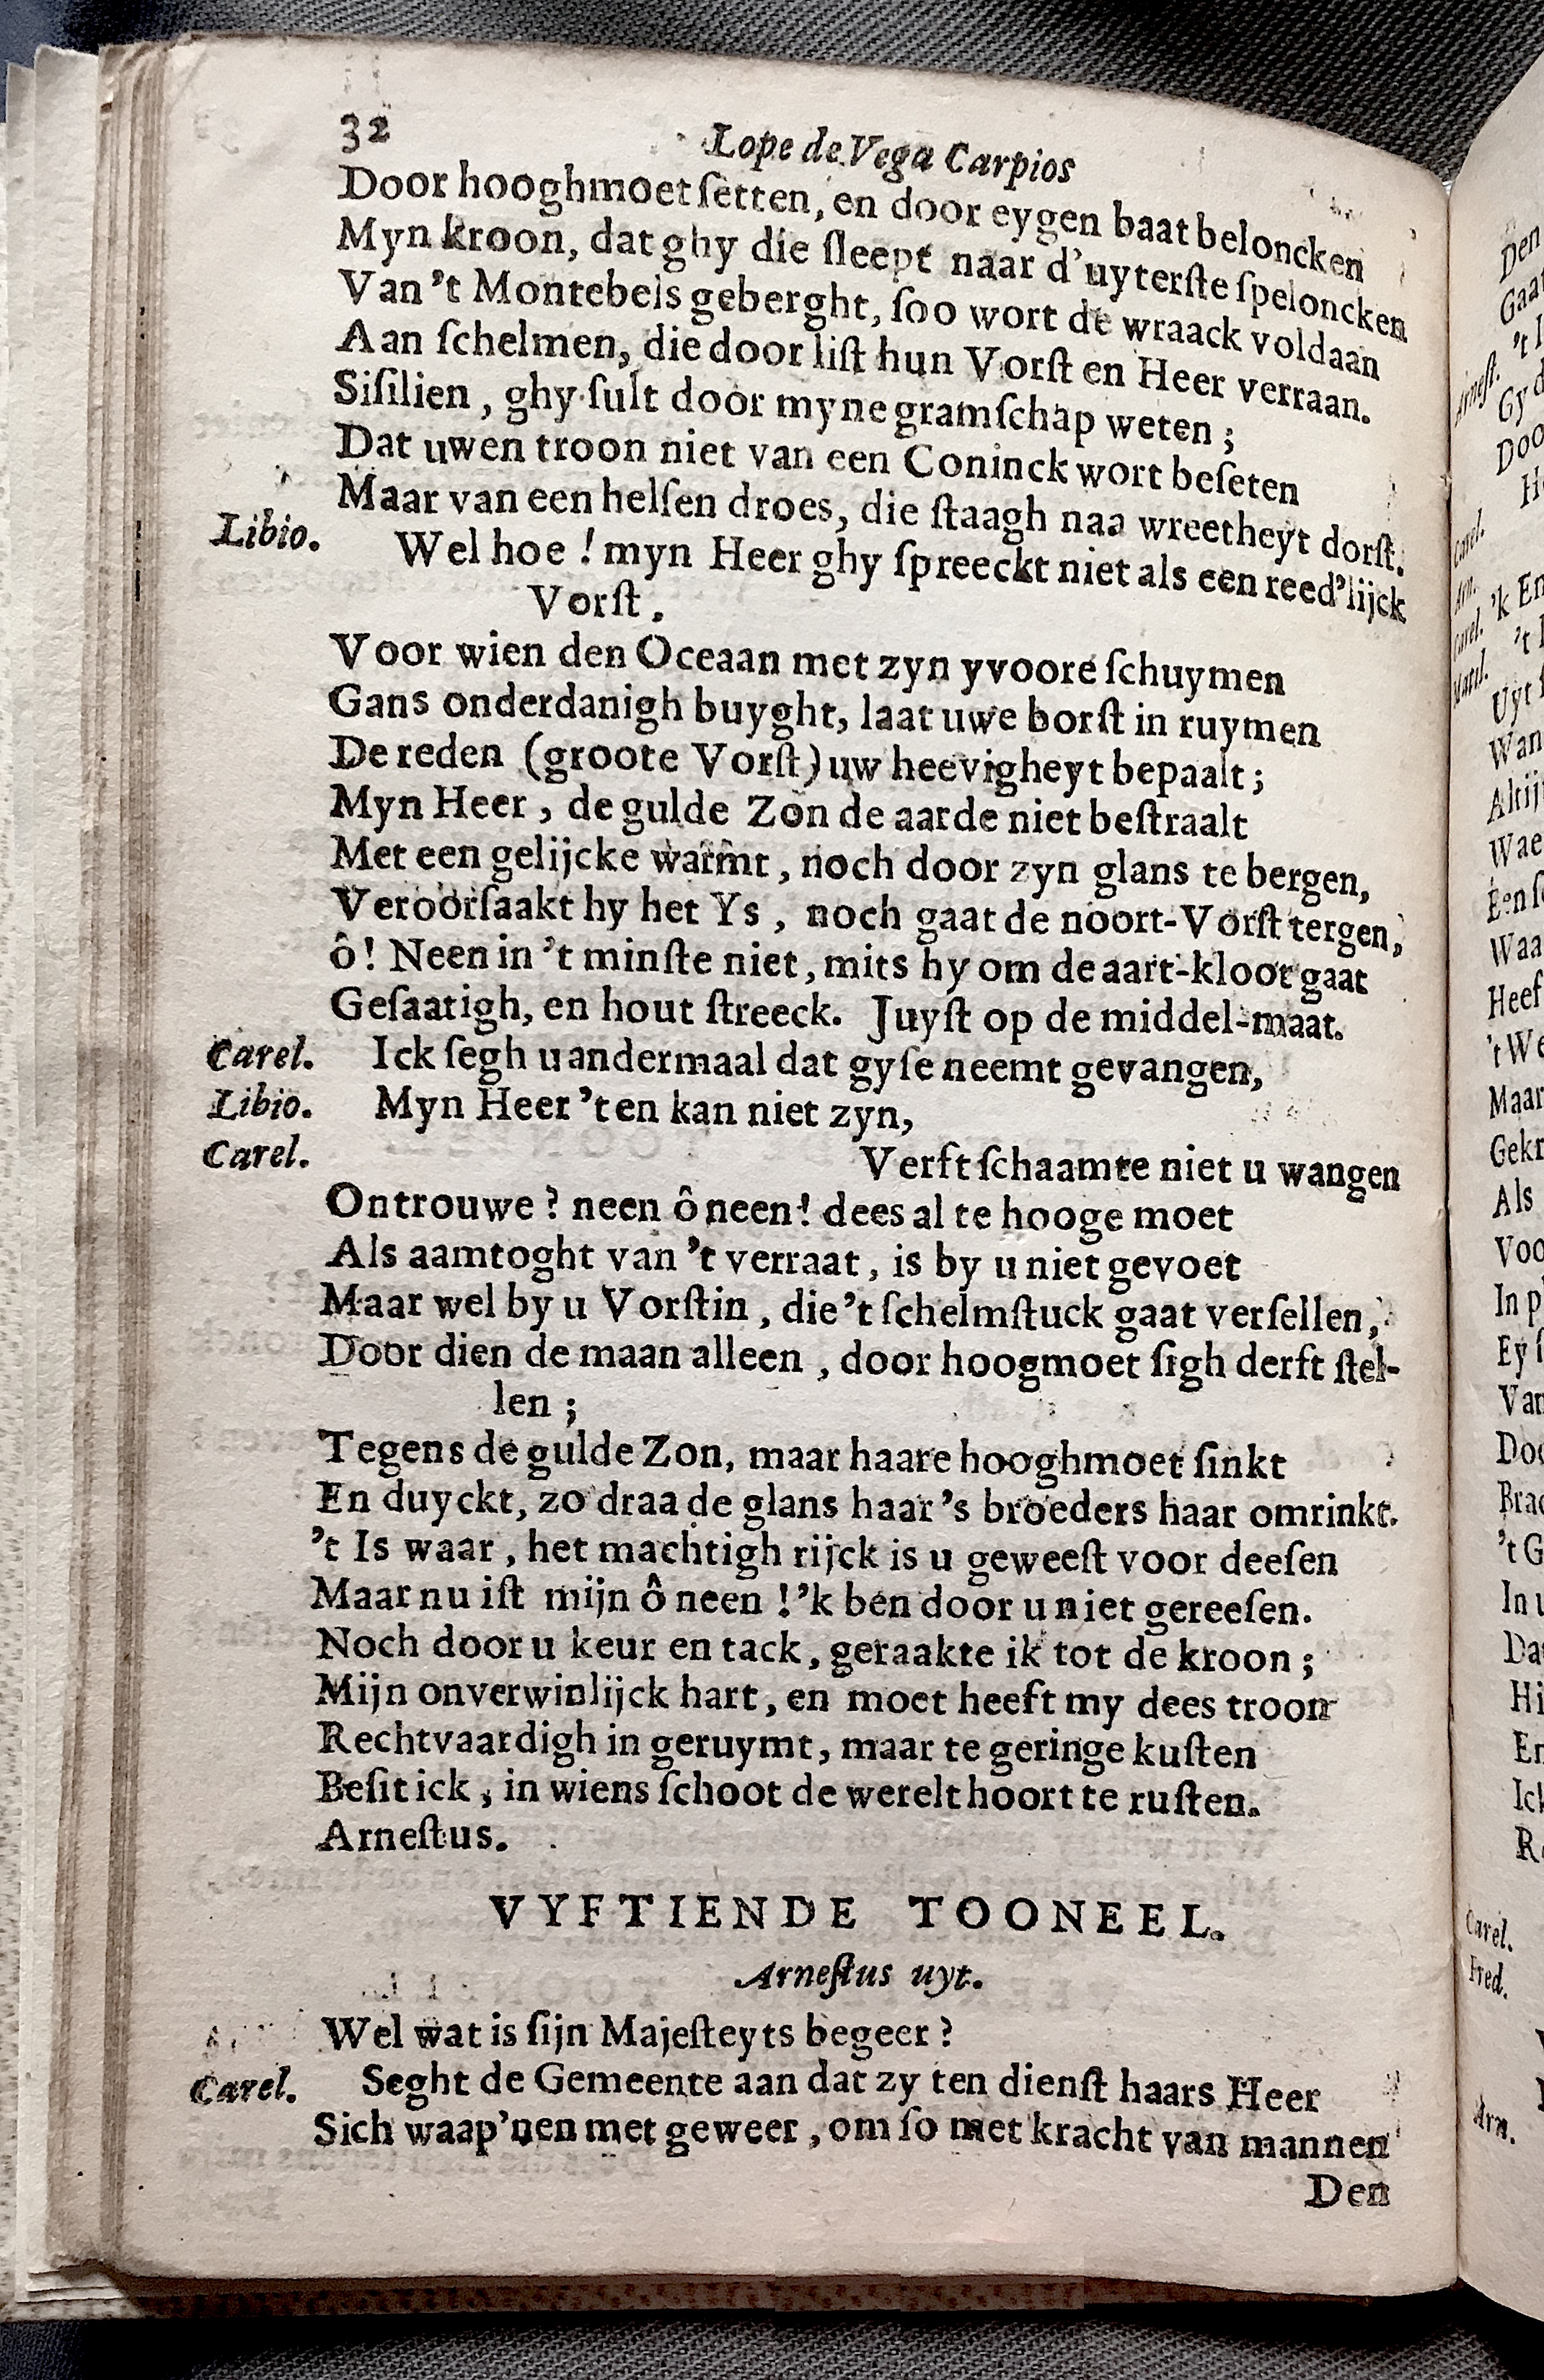 32 Lope de Vega Carpios
Door hooghmoet ſetten, en door eygen baat beloncken
Myn kroon, dat ghy die ſleept naar d'uyterſte ſpeloncken
Van 't Montebels geberght, ſoo wort de wraack voldaan
Aan ſchelmen, die door liſt hun Vorſt en Heer verraan.
Siſilien, ghy ſult door myne gramſchap weten;
Dat uwen troon niet van een Coninck wort beſeten
Maar van een helſen droes, die ſtaagh naa wreetheyt dorſt.
Libio. Wel hoe! myn Heer ghy ſpreeckt niet als een reed'lijck
Vorſt.
Voor wien den Oceaan met zyn yvoore ſchuymen
Gans onderdanigh buyght, laat uwe borſt in ruymen
De reden (groote Vorſt) uw heevigheyt bepaalt;
Myn Heer, de gulde Zon de aarde niet beſtraalt
Met een gelijcke warmt, noch door zyn glans te bergen,
Veroorſaakt hy het Ys, noch gaat de noort-Vorſt tergen,
ô! Neen in 't minſte niet, mits hy om de aart-kloot gaat
Geſaatigh, en hout ſtreeck. Juyſt op de middel-maat.
Carel. Ick ſegh u andermaal dat gy ſe neemt gevangen,
Libio. Myn Heer 't en kan niet zyn,
Carel. Verft ſchaamte niet u wangen
Ontrouwe? neen ô neen! dees al te hooge moet
Als aamtoght van 't verraat, is by u niet gevoet
Maar wel by u Vorſtin, die 't ſchelmſtuck gaat verſellen,
Door dien de maan alleen, door hoogmoet ſigh derft ſtel-
len;
Tegens de gulde Zon, maar haare hooghmoet ſinkt
En duyckt, zo draa de glans haar 's broeders haar omrinkt.
't Is waar, het machtigh rijck is u geweeſt voor deeſen
Maar nu iſt mijn ô neen! 'k ben door u niet gereeſen.
Noch door u keur en tack, geraakte ik tot de kroon;
Mijn onverwinlijck hart, en moet heeft my dees troon
Rechtvaardigh in geruymt, maar te geringe kuſten
Beſit ick, in wiens ſchoot de werelt hoort te ruſten.
Arneſtus.
VYFTIENDE TOONEEL.
Arneſtus uyt.
Wel wat is ſijn Majeſteyts begeer?
Carel. Seght de Gemeente aan dat zy ten dienſt haars Heer
Sich waap'nen met geweer, om ſo met kracht van mannen
Den